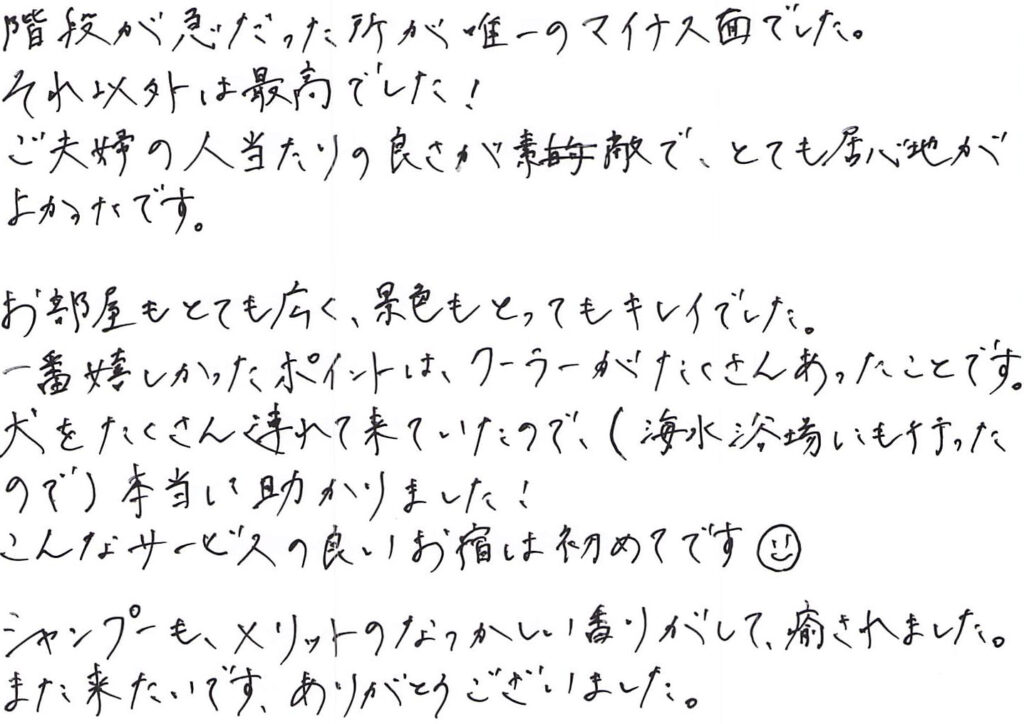 階段が急だった所が唯一のマイナス面でした。
それ以外は最高でした!
ご夫婦の人当たりの良さが素敵で、とても居心地が
よかったです。
お部屋もとても広く、景色もとってもキレイでした。
一番嬉しかったポイントは、クーラーがたくさんあったことです。
犬をたくさん連れて来ていたので、(海水浴場にも行った
ので)本当に助かりました!
こんなサービスの良いお宿は初めてです☺
シャンプーも、メリットのなつかしい香りがして、癒されました。
また来たいです、ありがとうございました。